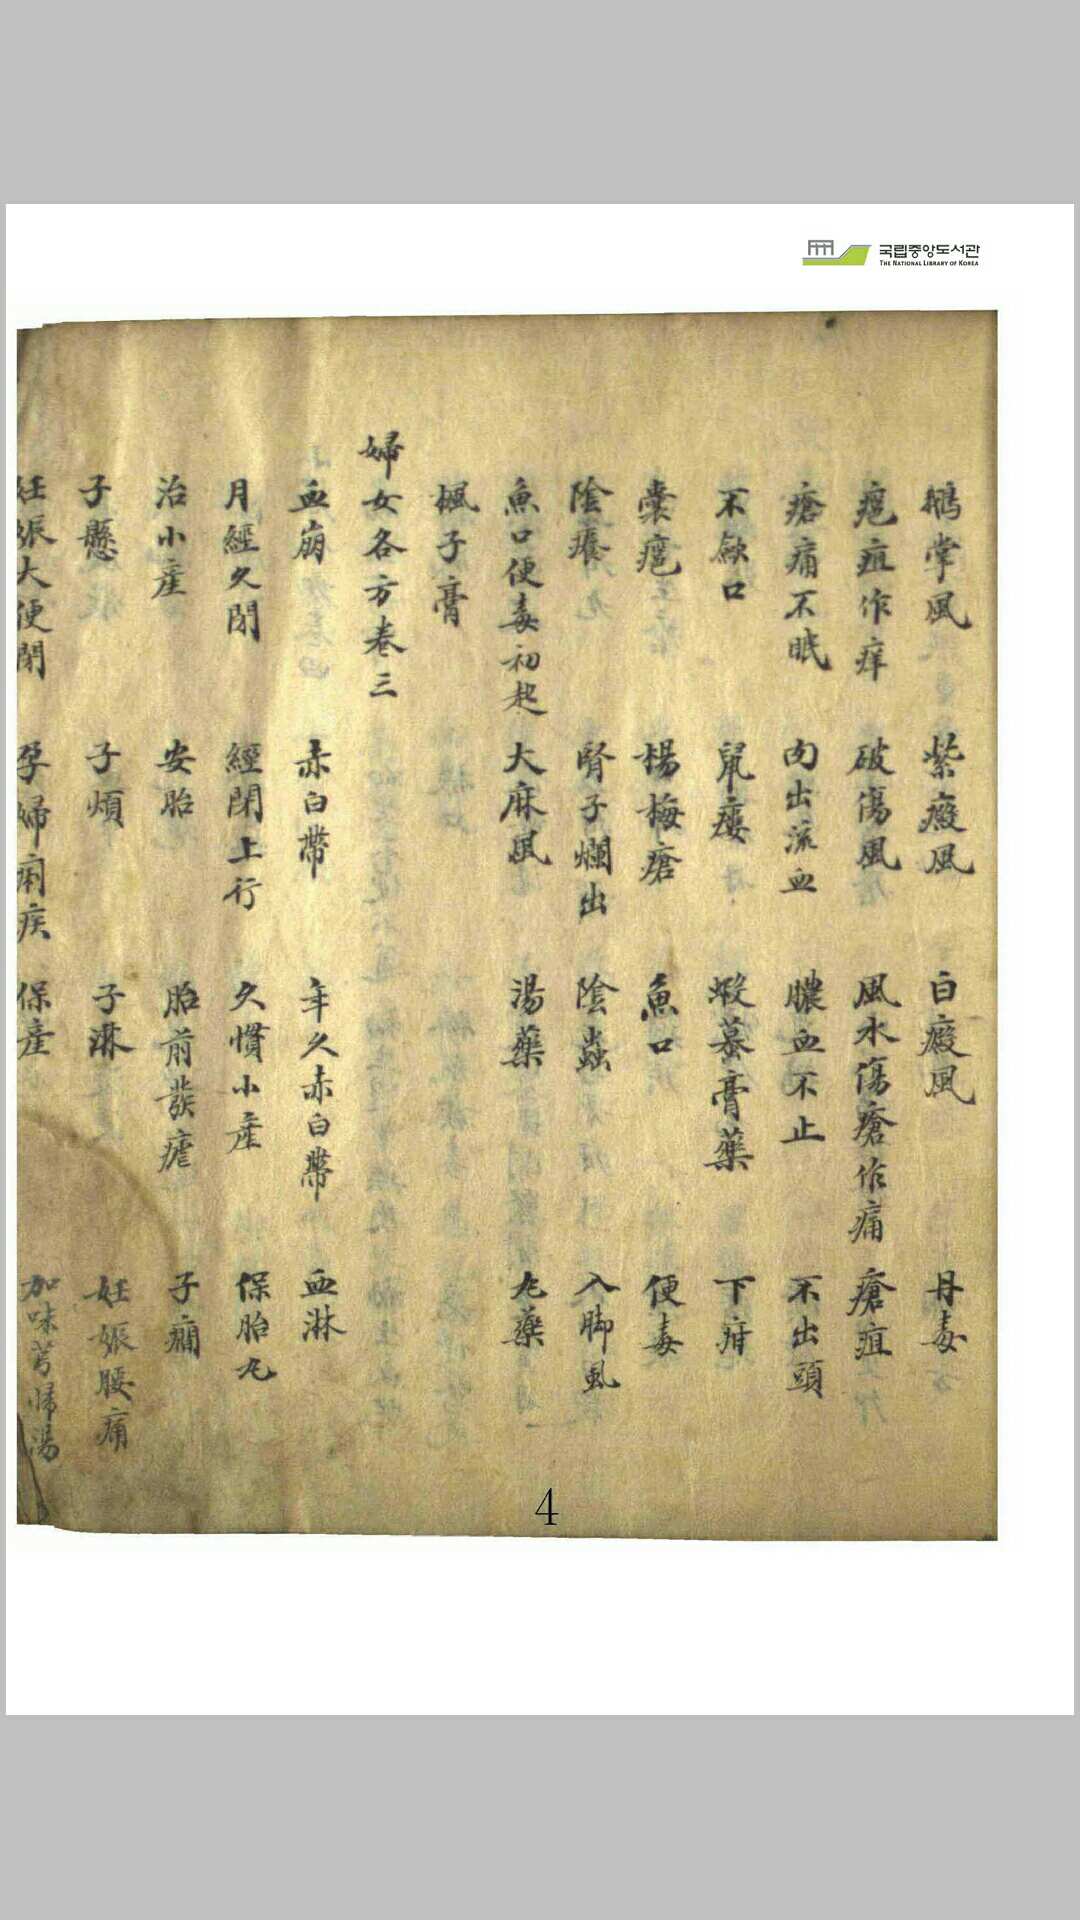 국립중앙도서관
THE NATIONAL LIBRARY OF KOREA
鵝掌風 紫癜風 白癜風 丹毒
疱疽作痒 破傷風 風水傷瘡作痛 瘡疽
瘡痛不眠 肉出流血 膿血不止 不出頭
不斂口 鼠瘻 蝦蟇膏藥 下疳
囊癰 楊梅瘡 魚口 便毒
陰癢 腎子爛出 陰蝨 入脚風
魚口便毒初起 大麻風 湯藥 丸藥
楓子膏
婦女各方卷三
血崩 赤白帶 年久赤白帶 血淋
月經久閉 經閉上行 久慣小産 保胎丸
治小産 安胎 胎前發瘧 子癎
子懸 子煩 子淋 妊娠腰痛
妊娠大便閉 孕婦痢疾 保産 加味芎歸湯
4